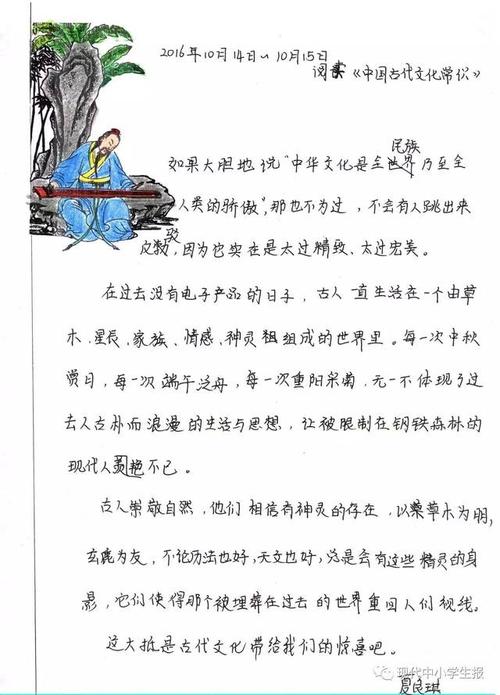 2016年10月14日~10月15日
阅《中国古代文化常识》
民族
如果大胆地说“中华文化是全世界乃至全
人类的骄傲”,那也不为过,不会有人跳出来
驳
反,因为它实在是太过精致、太过宏美。
在过去没有电子产品的日子,古人一直生活在一个由草
木、星辰、家族、情感、神灵组成的世界里。每一次中秋
赏月,每一次端午泛舟,每一次重阳采菊,无一不体现了过
去人古朴而浪漫的生活与思想,让被限制在钢铁森林的
现代人艳不已。
古人崇敬自然,他们相信有神灵的存在,以桑草木为朋,
玄鹿为友,不论历法也好,天文也好,总是会有这些精灵的身
影,它们使得那个被埋葬在过去的世界重回人们视线。
这大抵是古代文化带给我们的惊喜吧。
夏良琪
现代中小学生报